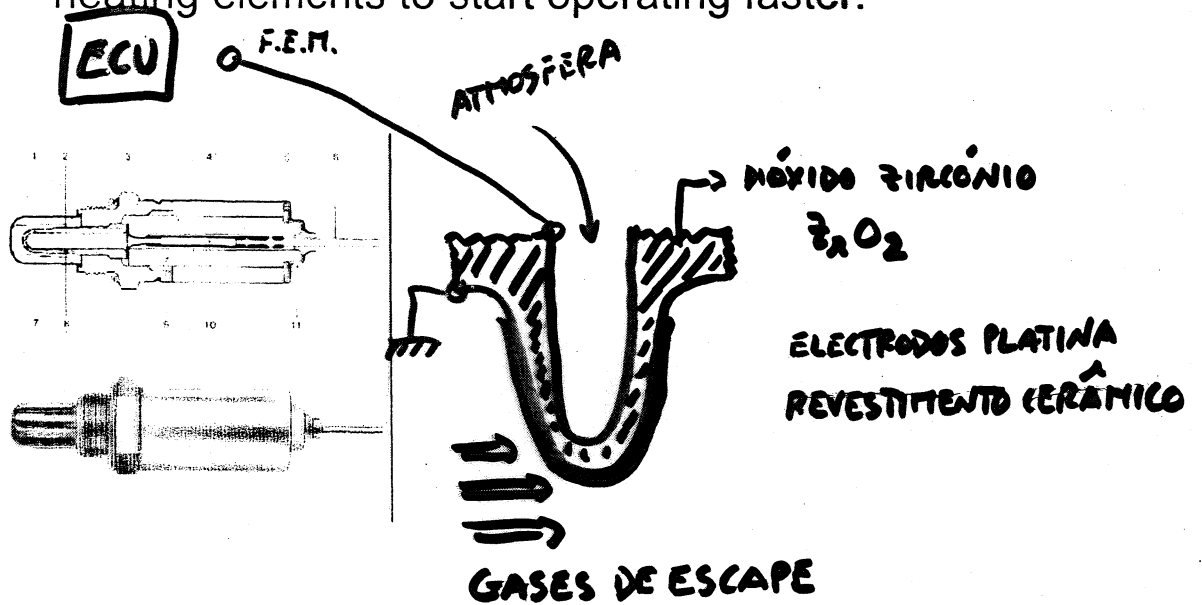 heating elements to start operating faster.
ECU
F.E.M.
ATMOSFERA
1 2 3 4 5 6
DIÓXIDO ZIRCÓNIO
ZrO2
7 8 9 10 11
ELECTRODOS PLATINA
REVESTIMENTO CERÂMICO
GASES DE ESCAPE